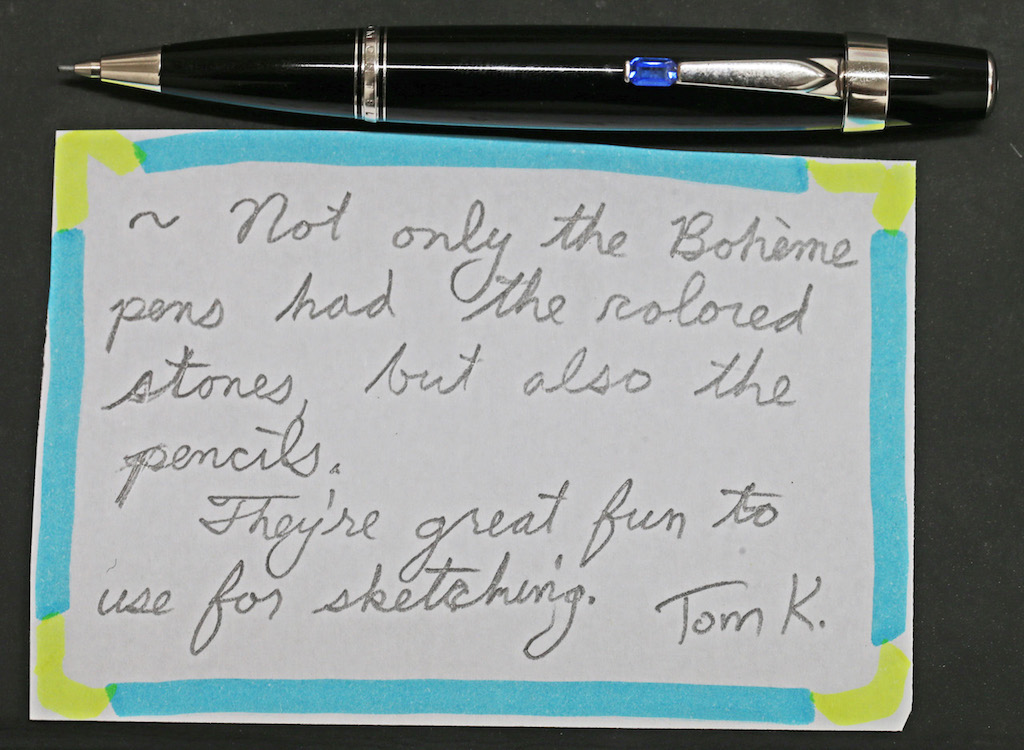 ~ Not only the Bohème
pens had the colored
stones, but also the
pencils.
They're great fun to
use for sketching.
Tom K.